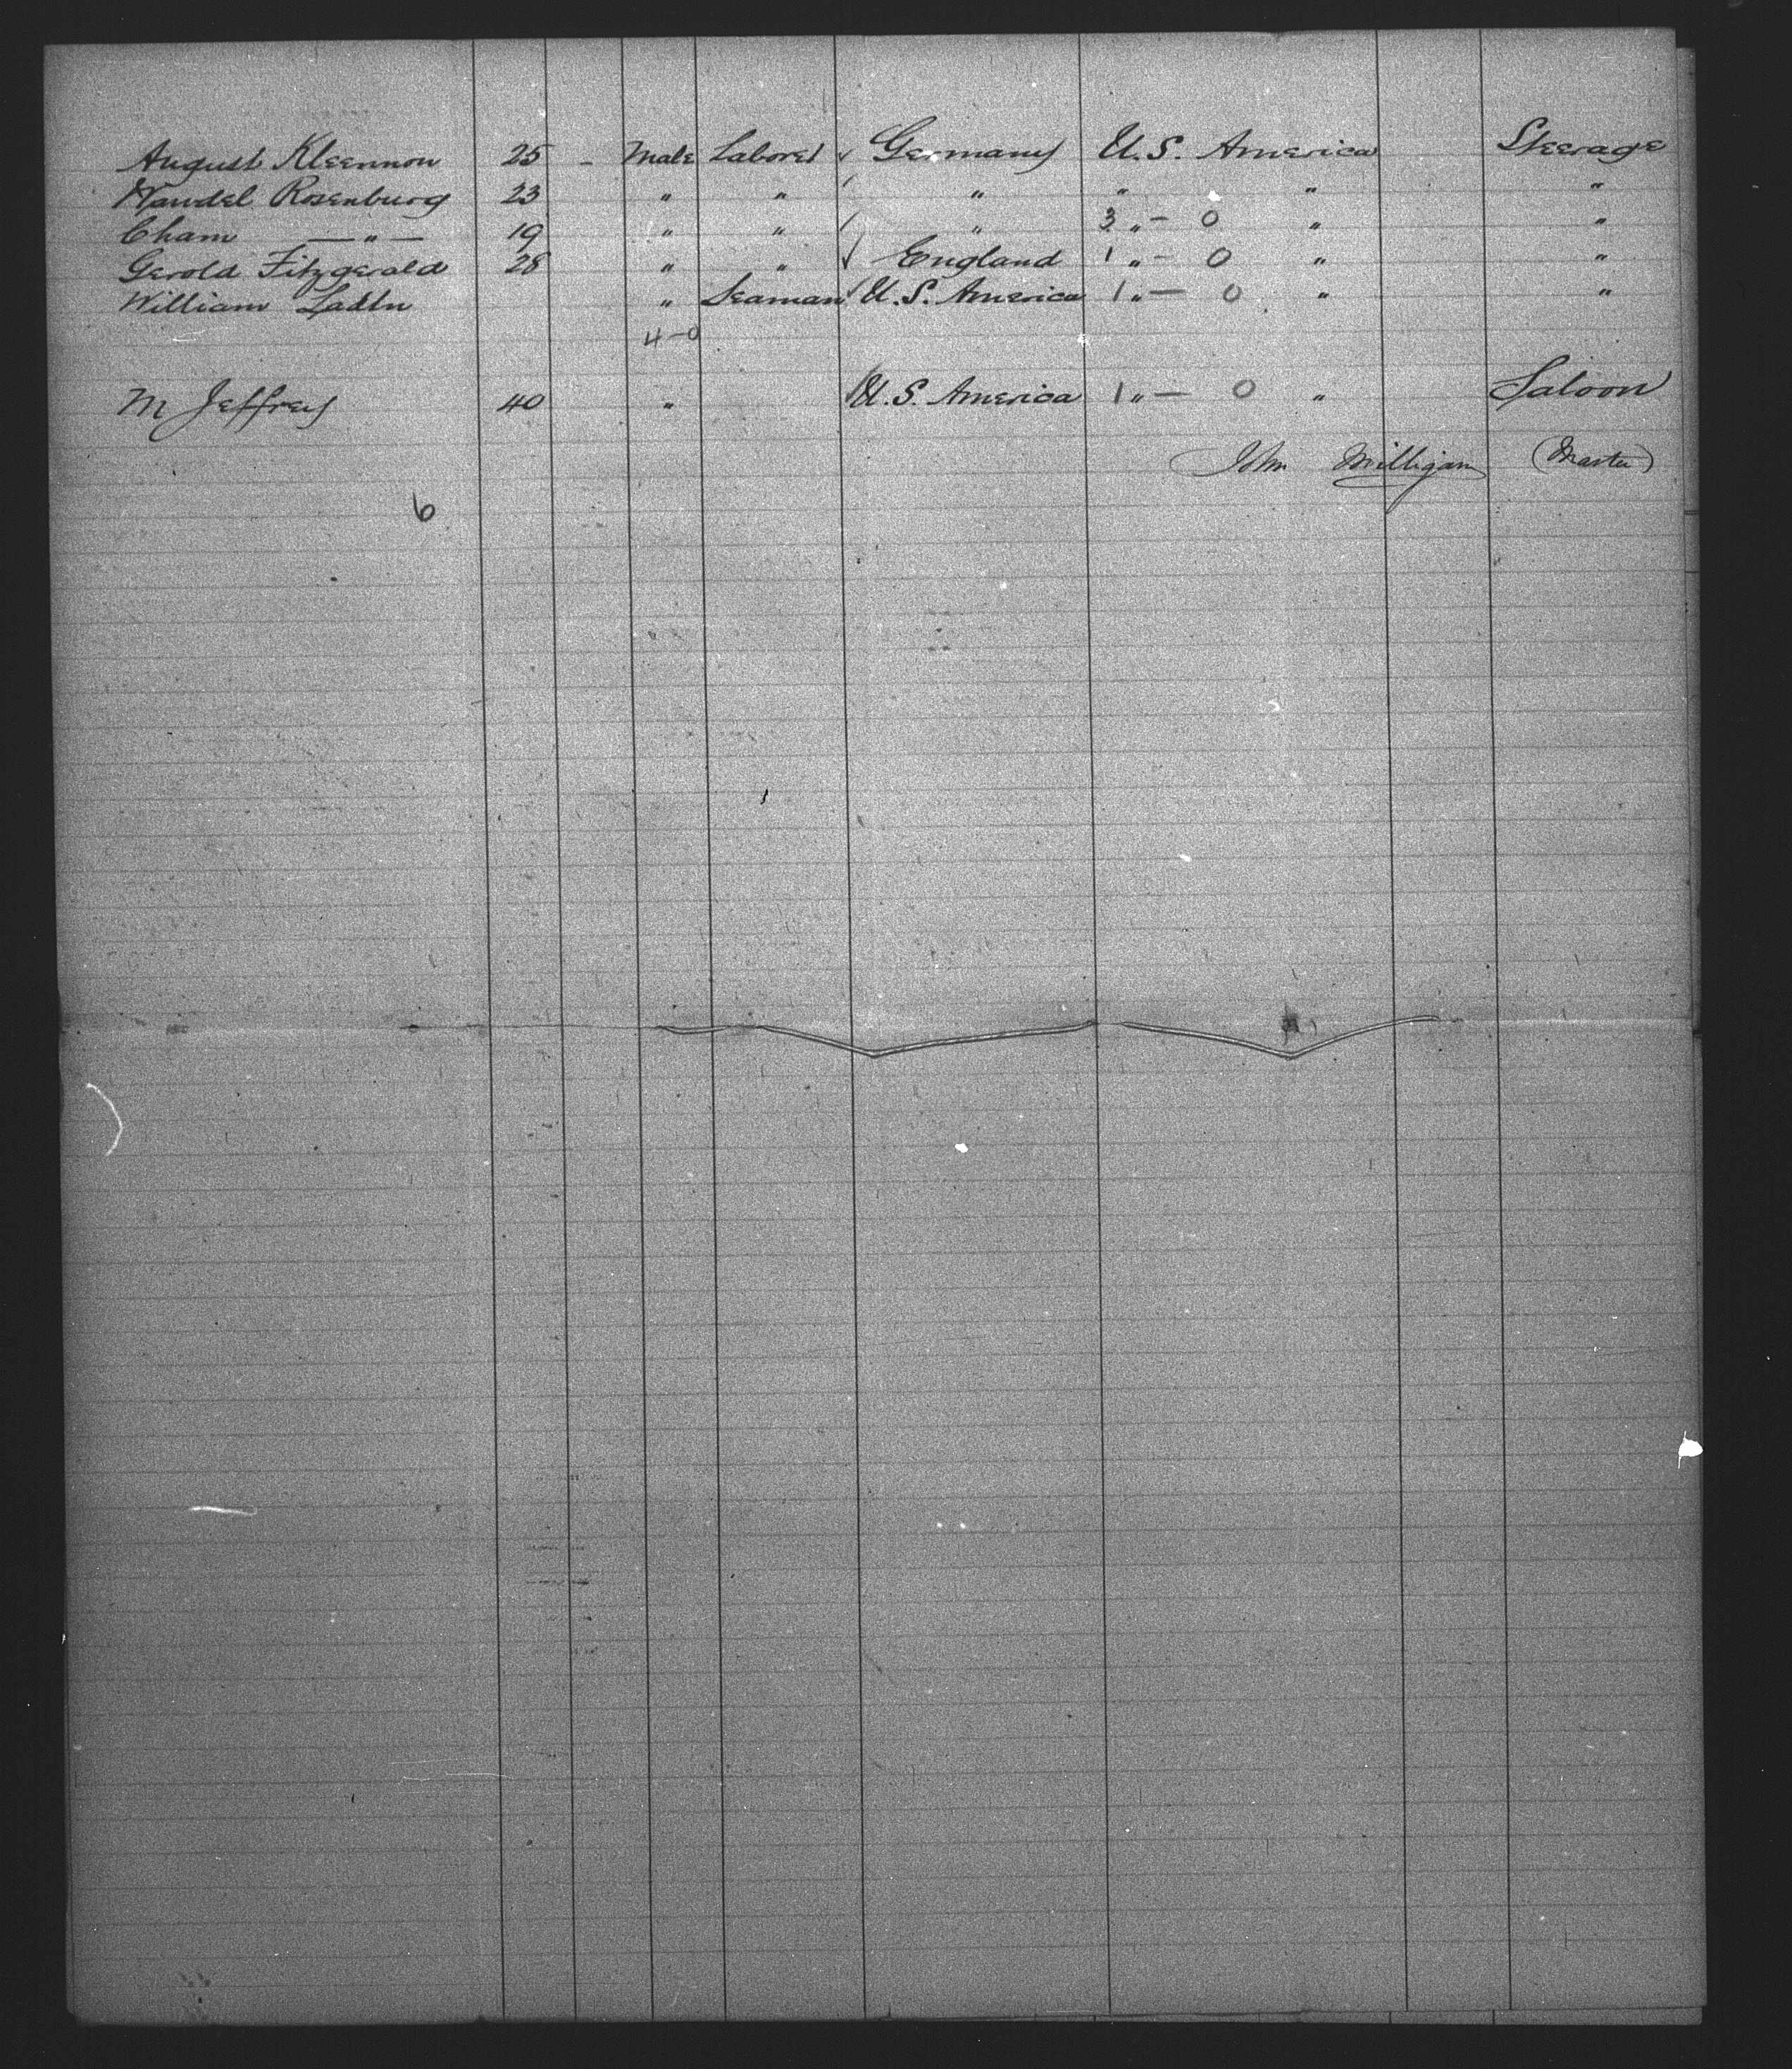 August Kleennon 25 - Male Laborer ✓ Germany U.S. America Steerage
Mandel Rosenburg 23 " " " " " "
Cham — " — 19 " " " 3 " - 0 " "
Gerold Fitzgerald 28 " " ✓ England 1 " - 0 " "
William " Seaman ✓ U.S. America 1 " - 0 " "
4-0
M Jeffrey 40 " ✓ U.S. America 1 " - 0 " Saloon
John Milligan (Master)
6